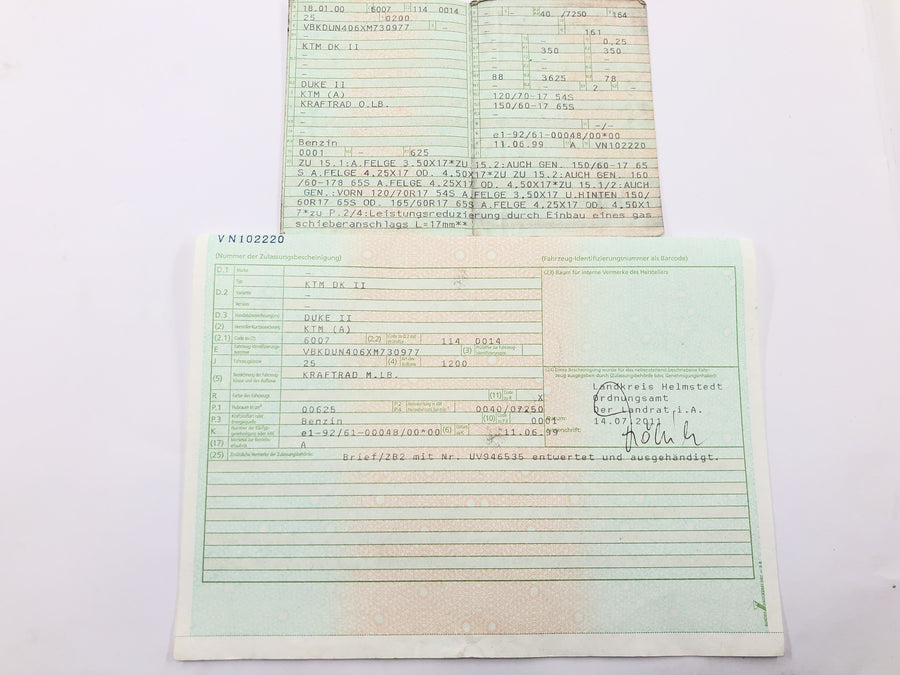 18.01.00 6007 114 0014
25 0200
VBKDUN406XM730977
–
KTM DK II
–
–
DUKE II
KTM (A)
KRAFTRAD O.LB.
–
–
–
Benzin
0001 – 625
– – 40 /7250 164
– 161
– – 0,25
– 350 350
– – –
– – –
88 3625 78
– 2 –
120/70-17 54S
150/60-17 65S
–
– -/-
e1-92/61-00048/00*00
11.06.99 A VN102220
ZU 15.1:A.FELGE 3.50X17*ZU 15.2:AUCH GEN. 150/60-17 65
S A.FELGE 4.25X17 OD. 4.50X17*ZU ZU 15.2:AUCH GEN. 160
/60-178 65S A.FELGE 4.25X17 OD. 4.50X17*ZU 15.1/2:AUCH
GEN.:VORN 120/70R17 54S A.FELGE 3.50X17 U.HINTEN 150/
60R17 65S OD. 165/60R17 65S A.FELGE 4.25X17 OD. 4.50X1
7*zu P.2/4:Leistungsreduzierung durch Einbau eines gas
schieberanschlags L=17mm**
VN102220
(Nummer der Zulassungsbescheinigung) (Fahrzeug-Identifizierungsnummer als Barcode)
D.1 Marke –
D.2 Typ KTM DK II
Variante –
Version –
D.3 Handelsbezeichnung(en) DUKE II
(2) Hersteller-Kurzbezeichnung KTM (A)
(2.1) Code zu (2) 6007 (2.2) Code zu D.2 mit Prüfziffer 114 0014
E Fahrzeug-Identifizierungsnummer VBKDUN406XM730977 (3) Prüfziffer zur Fahrzeug-Identifizierungsnr. –
J Fahrzeugklasse 25 (4) Art des Aufbaus 1200
(5) Bezeichnung der Fahrzeugklasse und des Aufbaus KRAFTRAD M.LB.
–
R Farbe des Fahrzeugs (11) Code zu R X
P.1 Hubraum in cm³ 00625 P.2 P.4 Nennleistung in kW Nenndrehzahl bei min⁻¹ 0040/07250
P.3 Kraftstoffart oder Energiequelle Benzin (10) Code zu P.3 0001
K Nummer der EG-Typgenehmigung oder ABE e1-92/61-00048/00*00 (6) Datum zu K 11.06.99
(17) Merkmal zur Betriebserlaubnis A
(25) Zusätzliche Vermerke der Zulassungsbehörde: Brief/ZB2 mit Nr. UV946535 entwertet und ausgehändigt.
(23) Raum für interne Vermerke des Herstellers
(24) Diese Bescheinigung wurde für das nebenstehend beschriebene Fahrzeug ausgegeben durch (Zulassungsbehörde bzw. Genehmigungsinhaber):
Landkreis Helmstedt
Ordnungsamt
Der Landrat i.A.
14.07.2011